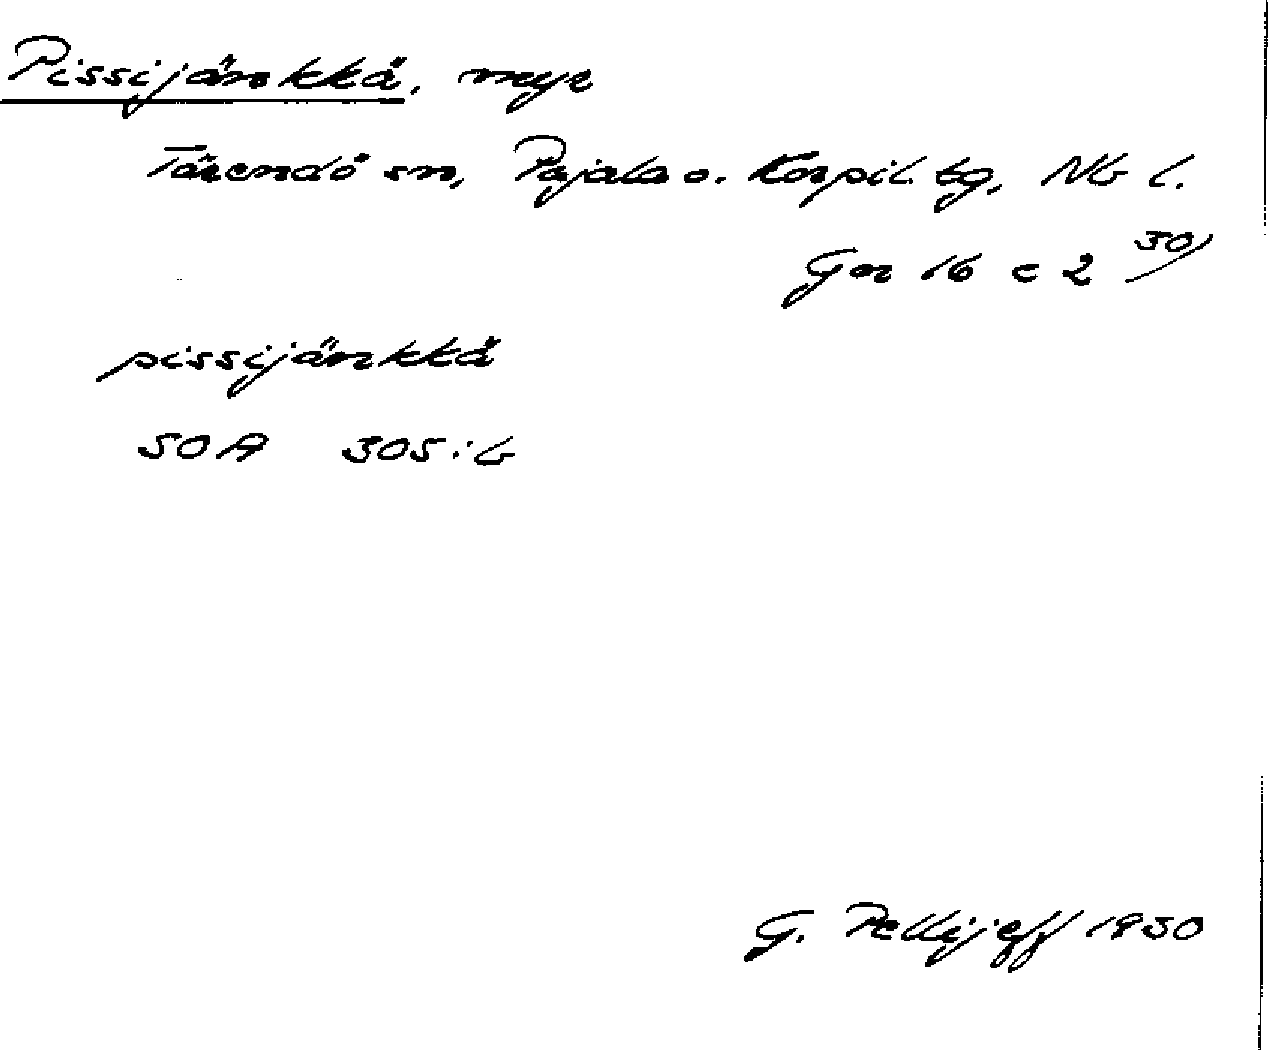 Pissijänkkä, myr
Tärendö sn, Pajala o. Korpil. tg, Nb l.
Gn 16 c 2 30/
pissijänkkä
SOA 305:b
G. Pellijeff 1950